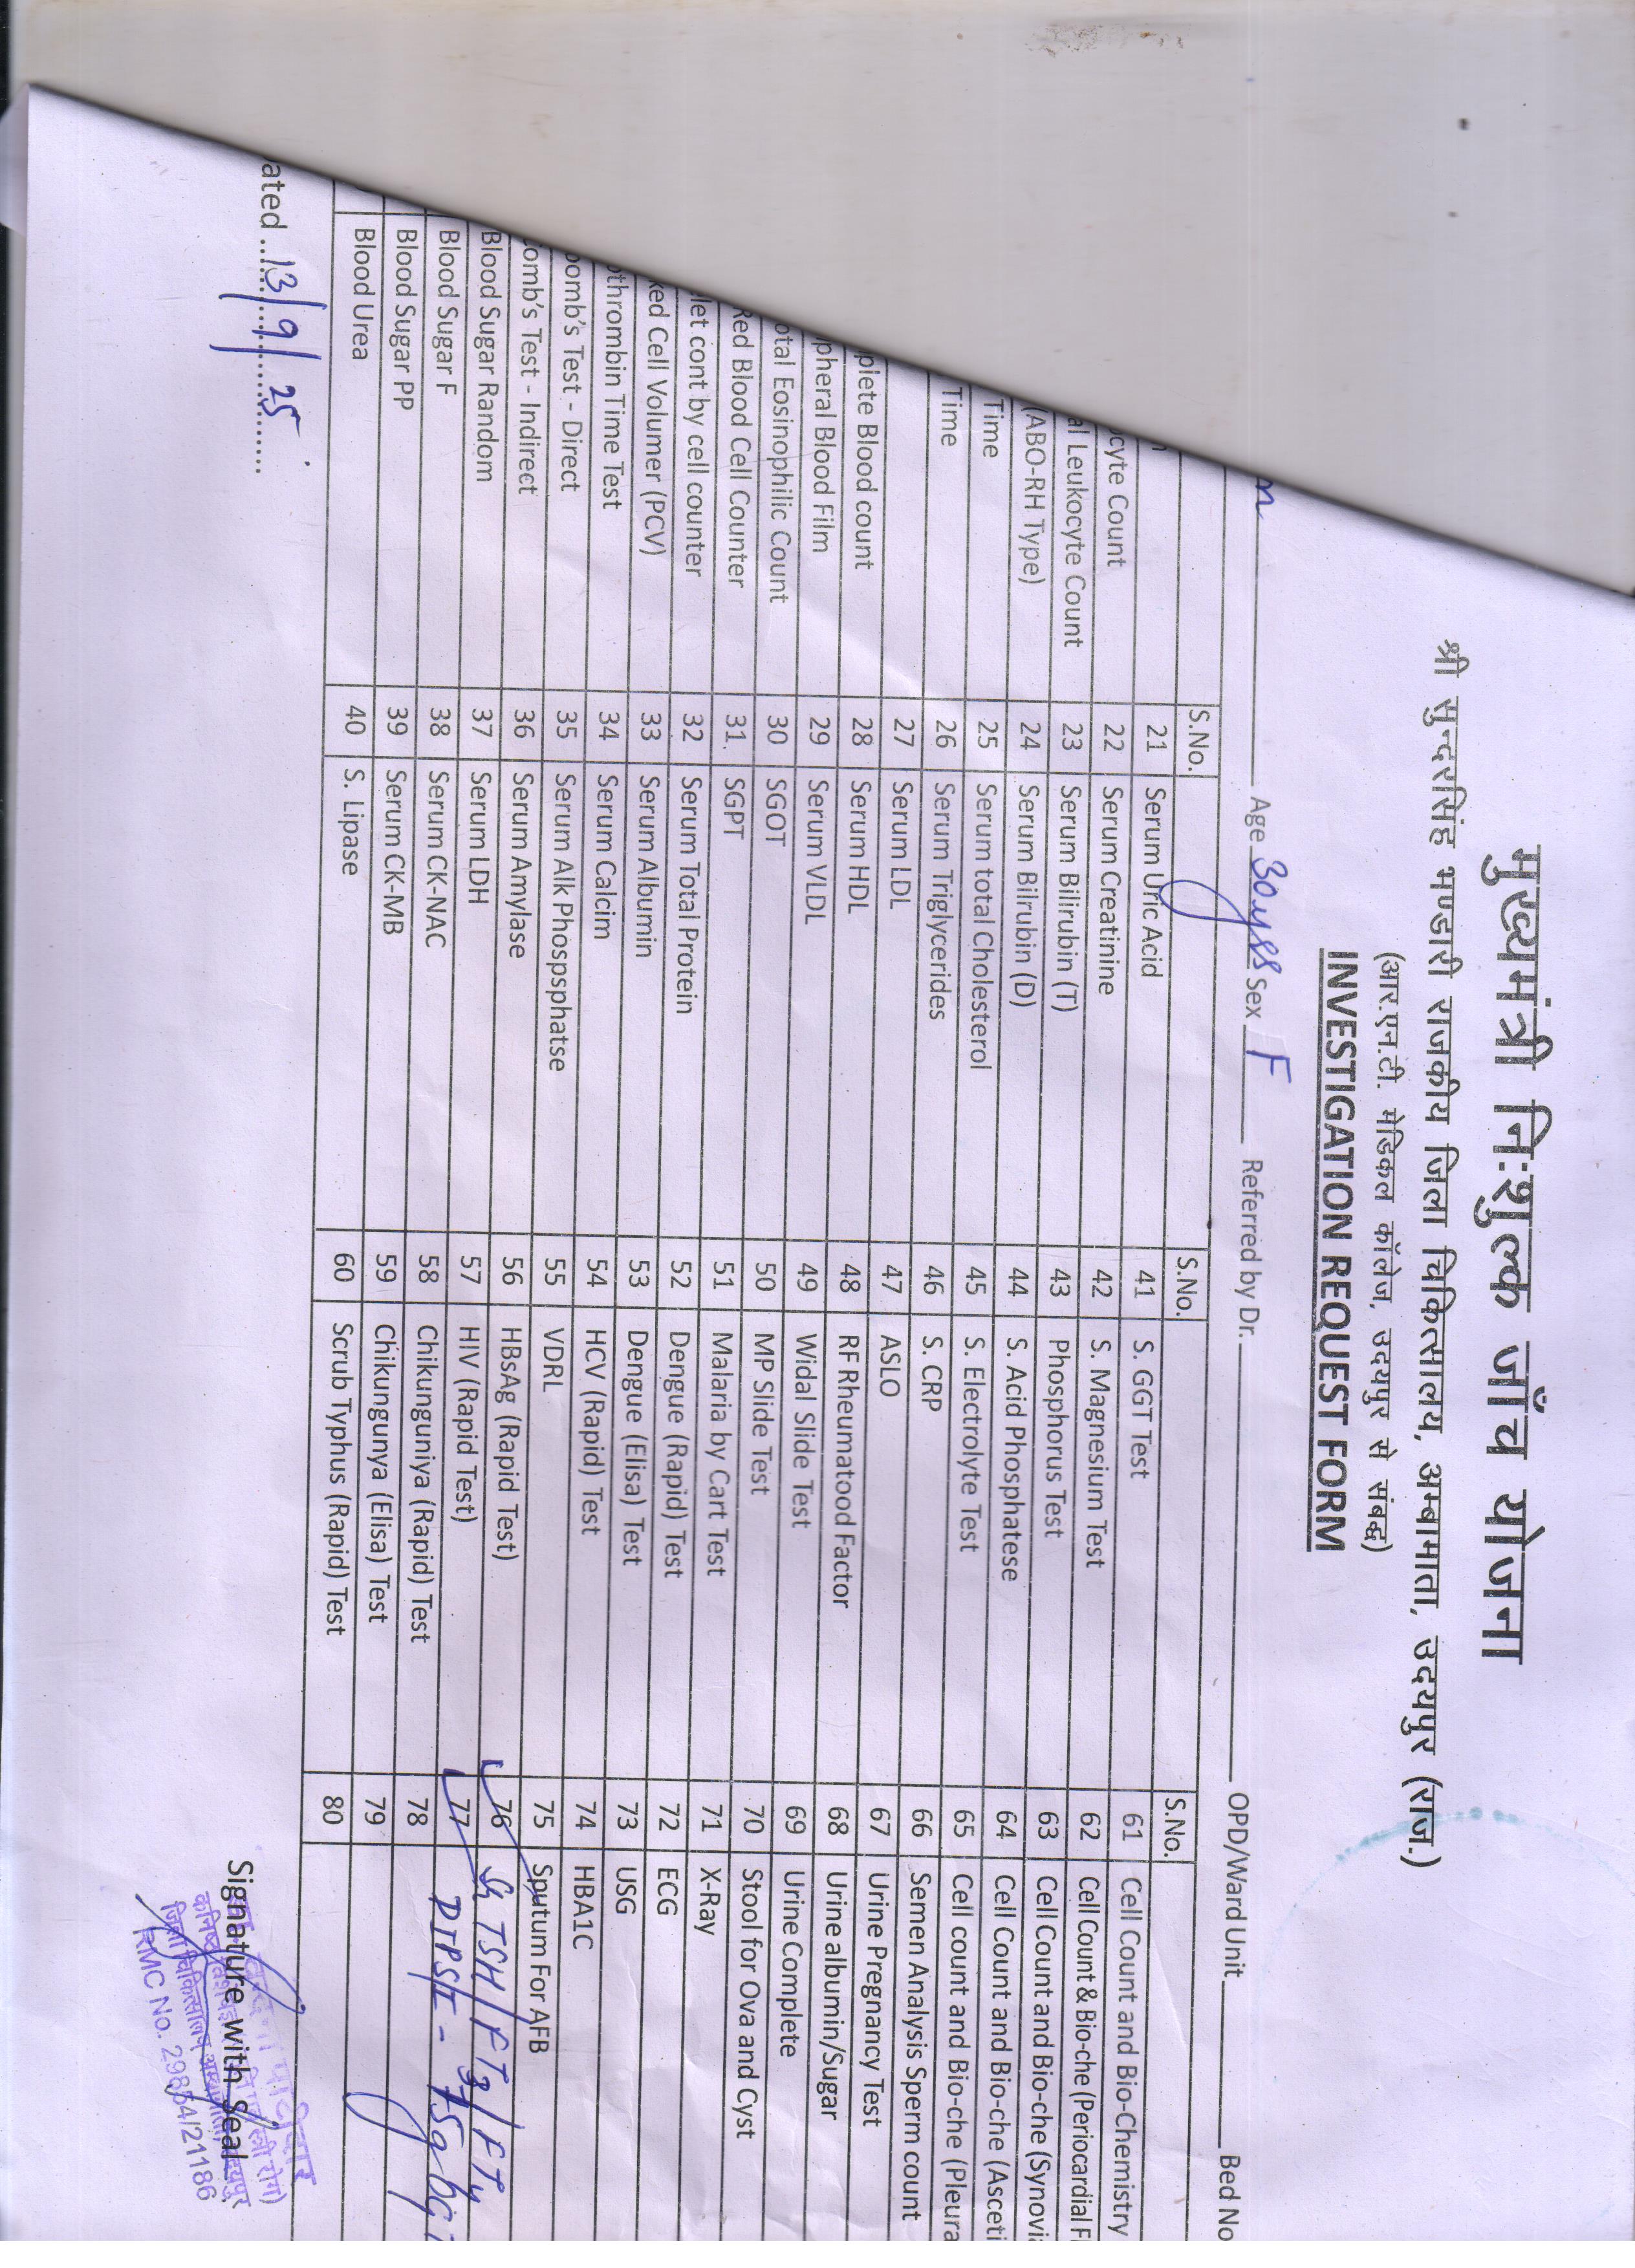 मुख्यमंत्री निःशुल्क जाँच योजना
श्री सुन्दरसिंह भण्डारी राजकीय जिला चिकित्सालय, अम्बामाता, उदयपुर (राज.)
(आर.एन.टी. मेडिकल कॉलेज, उदयपुर से संबद्ध)
INVESTIGATION REQUEST FORM
Age 30yrs Sex F Referred by Dr. OPD/Ward Unit Bed No
S.No. S.No. S.No.
21 Serum Uric Acid 41 S. GGT Test 61 Cell Count and Bio-Chemistry
cyte Count 22 Serum Creatinine 42 S. Magnesium Test 62 Cell Count & Bio-che (Periocardial F
al Leukocyte Count 23 Serum Bilirubin (T) 43 Phosphorus Test 63 Cell Count and Bio-che (Synovi
(ABO-RH Type) 24 Serum Bilrubin (D) 44 S. Acid Phosphatese 64 Cell Count and Bio-che (Asceti
Time 25 Serum total Cholesterol 45 S. Electrolyte Test 65 Cell count and Bio-che (Pleura
Time 26 Serum Triglycerides 46 S. CRP 66 Semen Analysis Sperm count
27 Serum LDL 47 ASLO 67 Urine Pregnancy Test
plete Blood count 28 Serum HDL 48 RF Rheumatood Factor 68 Urine albumin/Sugar
pheral Blood Film 29 Serum VLDL 49 Widal Slide Test 69 Urine Complete
otal Eosinophilic Count 30 SGOT 50 MP Slide Test 70 Stool for Ova and Cyst
Red Blood Cell Counter 31. SGPT 51 Malaria by Cart Test 71 X-Ray
let cont by cell counter 32 Serum Total Protein 52 Dengue (Rapid) Test 72 ECG
ked Cell Volumer (PCV) 33 Serum Albumin 53 Dengue (Elisa) Test 73 USG
thrombin Time Test 34 Serum Calcim 54 HCV (Rapid) Test 74 HBA1C
omb's Test - Direct 35 Serum Alk Phospsphatse 55 VDRL 75 Sputum For AFB
omb's Test - Indirect 36 Serum Amylase 56 HBsAg (Rapid Test) 76 Sr TSH/FT3/FT4
Blood Sugar Random 37 Serum LDH 57 HIV (Rapid Test) 77 DIPSI - 75g
Blood Sugar F 38 Serum CK-NAC 58 Chikunguniya (Rapid) Test 78
Blood Sugar PP 39 Serum CK-MB 59 Chikungunya (Elisa) Test 79
Blood Urea 40 S. Lipase 60 Scrub Typhus (Rapid) Test 80
ated 13/9/25
Signature with Seal
जिला चिकित्सालय अम्बामाता, उदयपुर
RMC No. 29854/21186